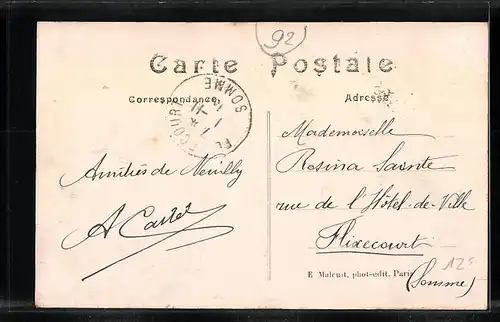 92
Carte Postale
Correspondance
Adresse
SOMME
Amitiés de Neuilly
A Cartet
Mademoiselle
Rosina Sainte
rue de l'Hôtel-de-Ville
Flixecourt
(Somme)
E Malcuit, phot-edit. Paris